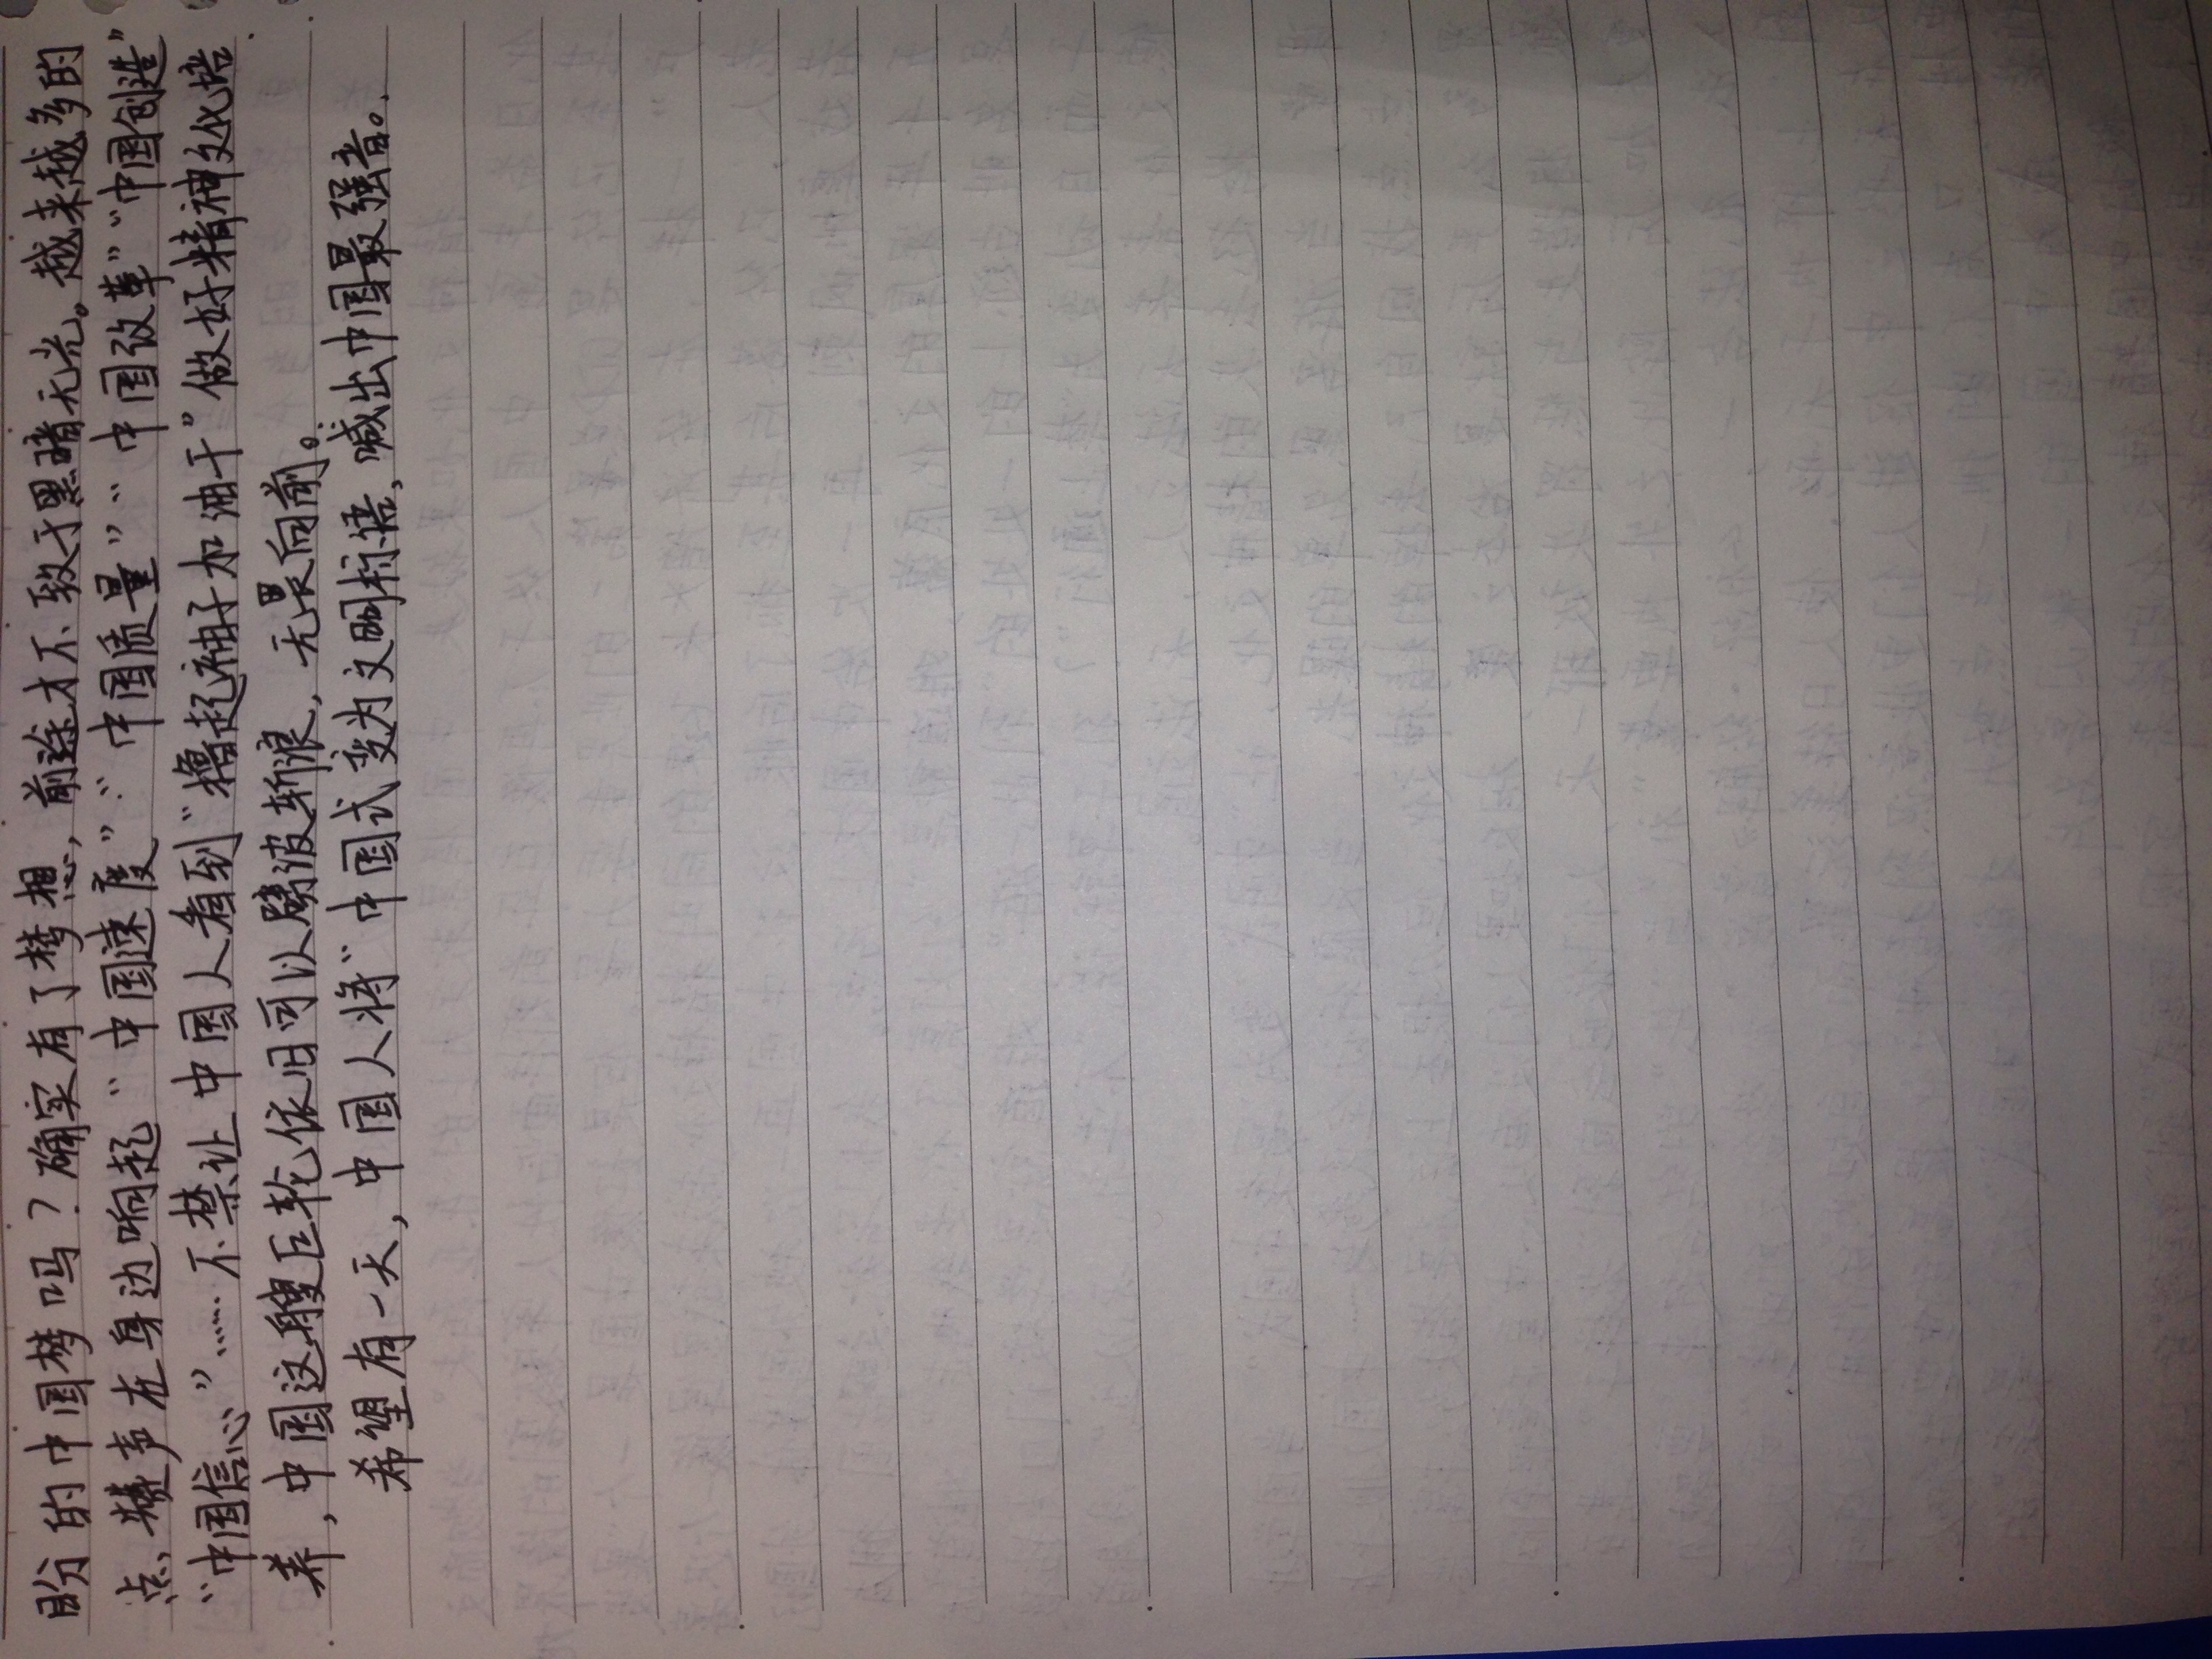 盼的中国梦吗？确实有了梦想，前途才不致于黑暗无光。越来越多的
点赞声在身边响起“中国速度”“中国质量”“中国改革”“中国创造”
“中国信心”……不禁让中国人看到“撸起袖子加油干”做好精神文化培
养，中国这艘巨轮依旧可以劈波斩浪，无畏向前。
希望有一天，中国人将“中国式变为文明标语，喊出中国最强音。